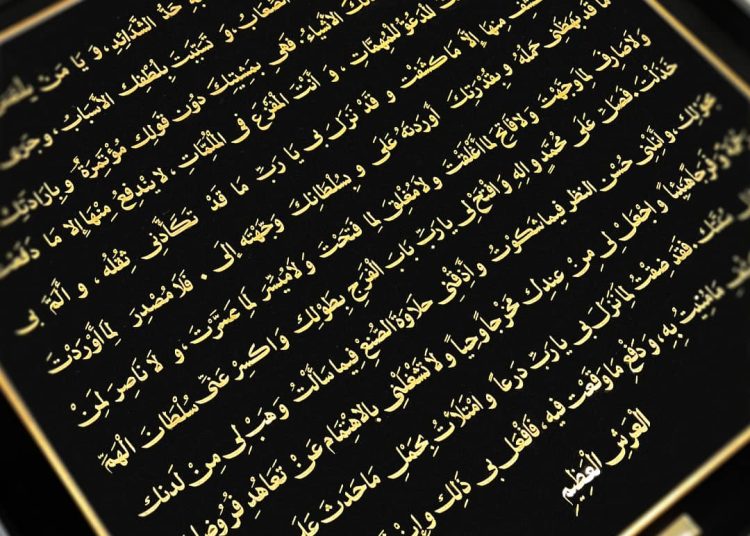 به حَدُّ الشَّدَائِدِ، وَ يَا مَنْ يُلْتَمَسُ
الصِّعَابُ، وَ تَسَبَّبَتْ بِلُطْفِكَ الْأَسْبَابُ، وَ جَرَى
الْأَشْيَاءُ. فَهِيَ بِمَشِيَّتِكَ دُونَ قَوْلِكَ مُؤْتَمِرَةٌ وَ بِإِرَادَتِكَ
الْمَدْعُوُّ لِلْمُهِمَّاتِ، وَ أَنْتَ الْمَفْزَعُ فِي الْمُلِمَّاتِ، لَا يَنْدَفِعُ مِنْهَا إِلَّا مَا دَفَعْتَ
مِنْهَا إِلَّا مَا كَشَفْتَ وَ قَدْ نَزَلَ بِي يَا رَبِّ مَا قَدْ تَكَأَّدَنِي ثِقْلُهُ، وَ أَلَمَّ بِي
مَا قَدْ بَهَظَنِي حَمْلُهُ وَ بِقُدْرَتِكَ أَوْرَدْتَهُ عَلَيَّ وَ بِسُلْطَانِكَ وَجَّهْتَهُ إِلَيَّ. فَلَا مُصْدِرَ لِمَا أَوْرَدْتَ
وَ لَا صَارِفَ لِمَا وَجَّهْتَ وَ لَا فَاتِحَ لِمَا أَغْلَقْتَ وَ لَا مُغْلِقَ لِمَا فَتَحْتَ وَ لَا مُيَسِّرَ لِمَا عَسَّرْتَ، وَ لَا نَاصِرَ لِمَنْ
خَذَلْتَ. فَصَلِّ عَلَى مُحَمَّدٍ وَ آلِهِ وَ افْتَحْ لِي يَا رَبِّ بَابَ الْفَرَجِ بِطَوْلِكَ وَ اكْسِرْ عَنِّي سُلْطَانَ الْهَمِّ
بِحَوْلِكَ، وَ أَنِلْنِي حُسْنَ النَّظَرِ فِيمَا شَكَوْتُ وَ أَذِقْنِي حَلَاوَةَ الصُّنْعِ فِيمَا سَأَلْتُ وَ هَبْ لِي مِنْ لَدُنْكَ
وَ فَرَجًا هَنِيئًا وَ اجْعَلْ لِي مِنْ عِنْدِكَ مَخْرَجًا وَحِيًّا وَ لَا تَشْغَلْنِي بِالِاهْتِمَامِ عَنْ تَعَاهُدِ فُرُوضِكَ
سُنَّتِكَ. فَقَدْ ضِقْتُ لِمَا نَزَلَ بِي يَا رَبِّ ذَرْعًا وَ امْتَلَأْتُ بِحَمْلِ مَا حَدَثَ عَلَيَّ
مَا مُنِيتُ بِهِ، وَ دَفْعِ مَا وَقَعْتُ فِيهِ، فَافْعَلْ بِي ذَلِكَ وَ إِنْ
الْعَرْشِ الْعَظِيمِ